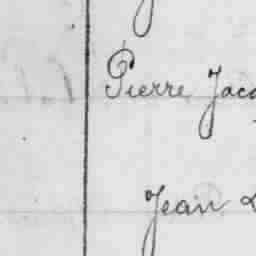 Pierre Jacq
Jean